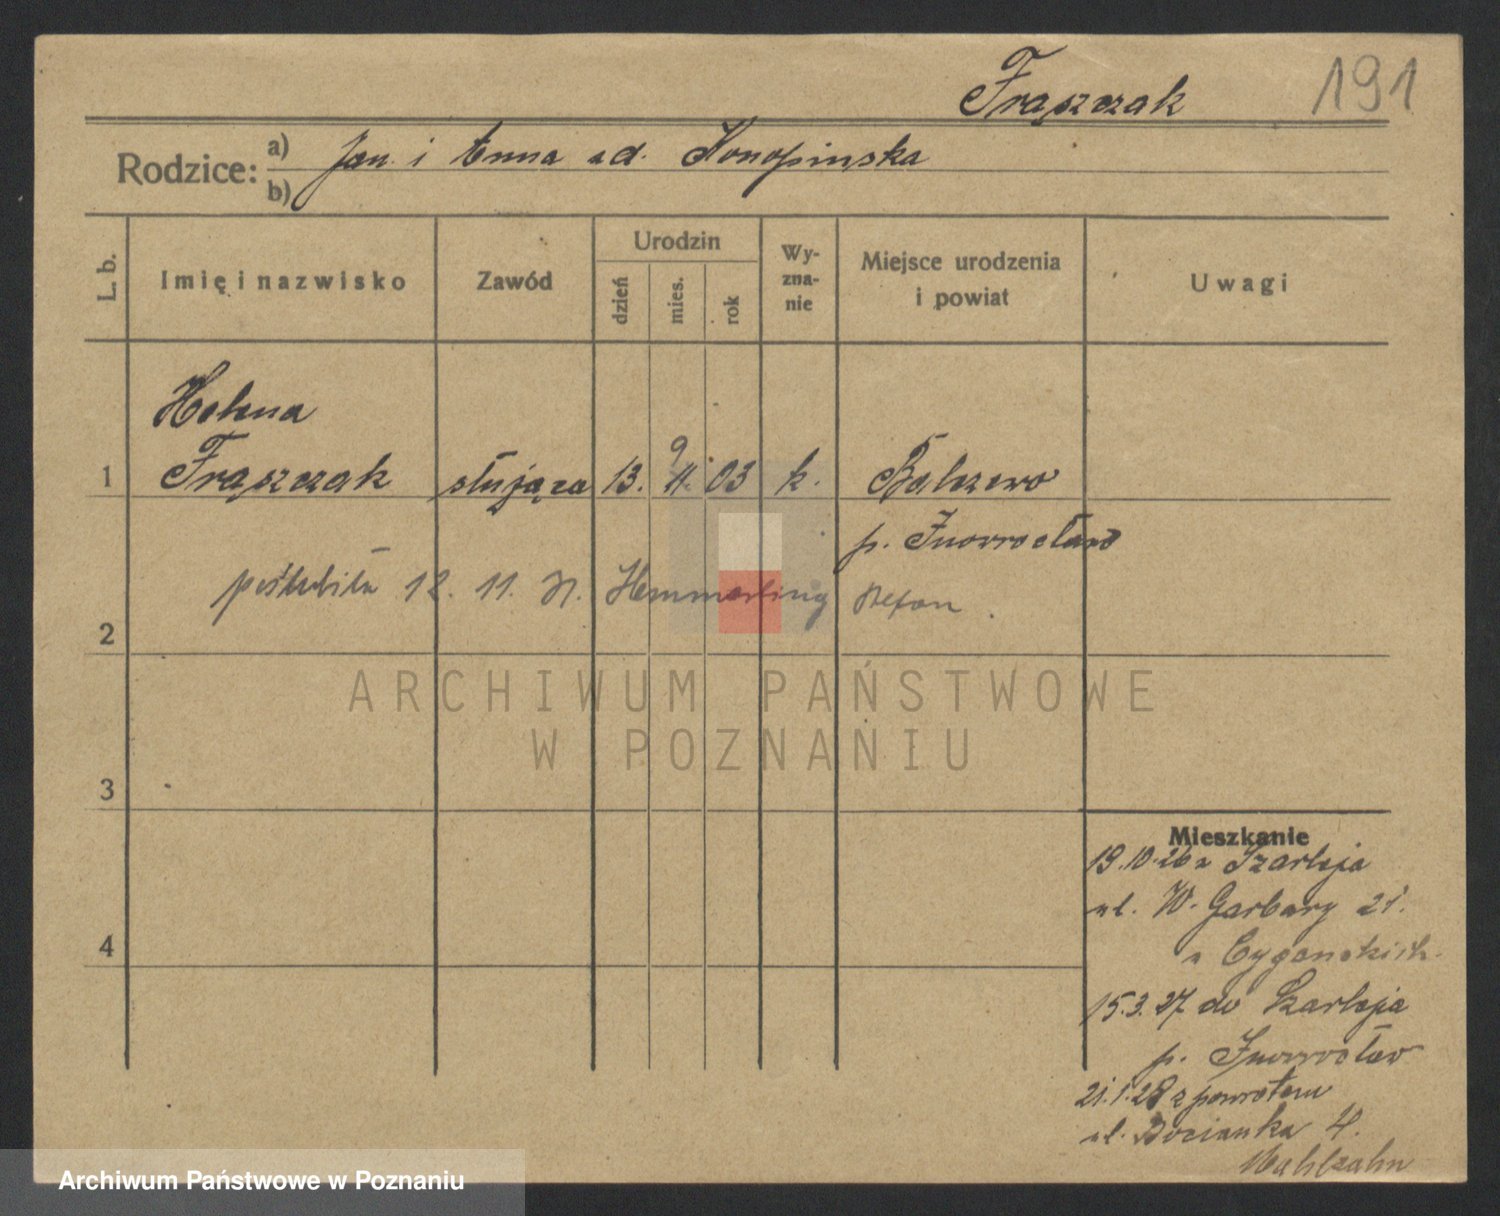 Frąszczak
191
Rodzice:
a) Jan i Anna zd. Konopinska
b)
L. b.
Imię i nazwisko
Zawód
Urodzin
dzień
mies.
rok
Wy-
zna-
nie
Miejsce urodzenia
i powiat
Uwagi
Helena
9
1 Frąszczak służąca 13. 11. 03 k. Balczewo
p. Inowrocław
poślubiła 12. 11. Hemmerling Stefan
2
3
4
ARCHIWUM PAŃSTWOWE
W POZNANIU
Mieszkanie
19.10.26 z Szarleja
ul. W. Garbary 21.
u Cyganskich
15.3.27 do Szarleja
p. Inowrocław
21.1.28 z powrotem
ul. 4.
Archiwum Państwowe w Poznaniu